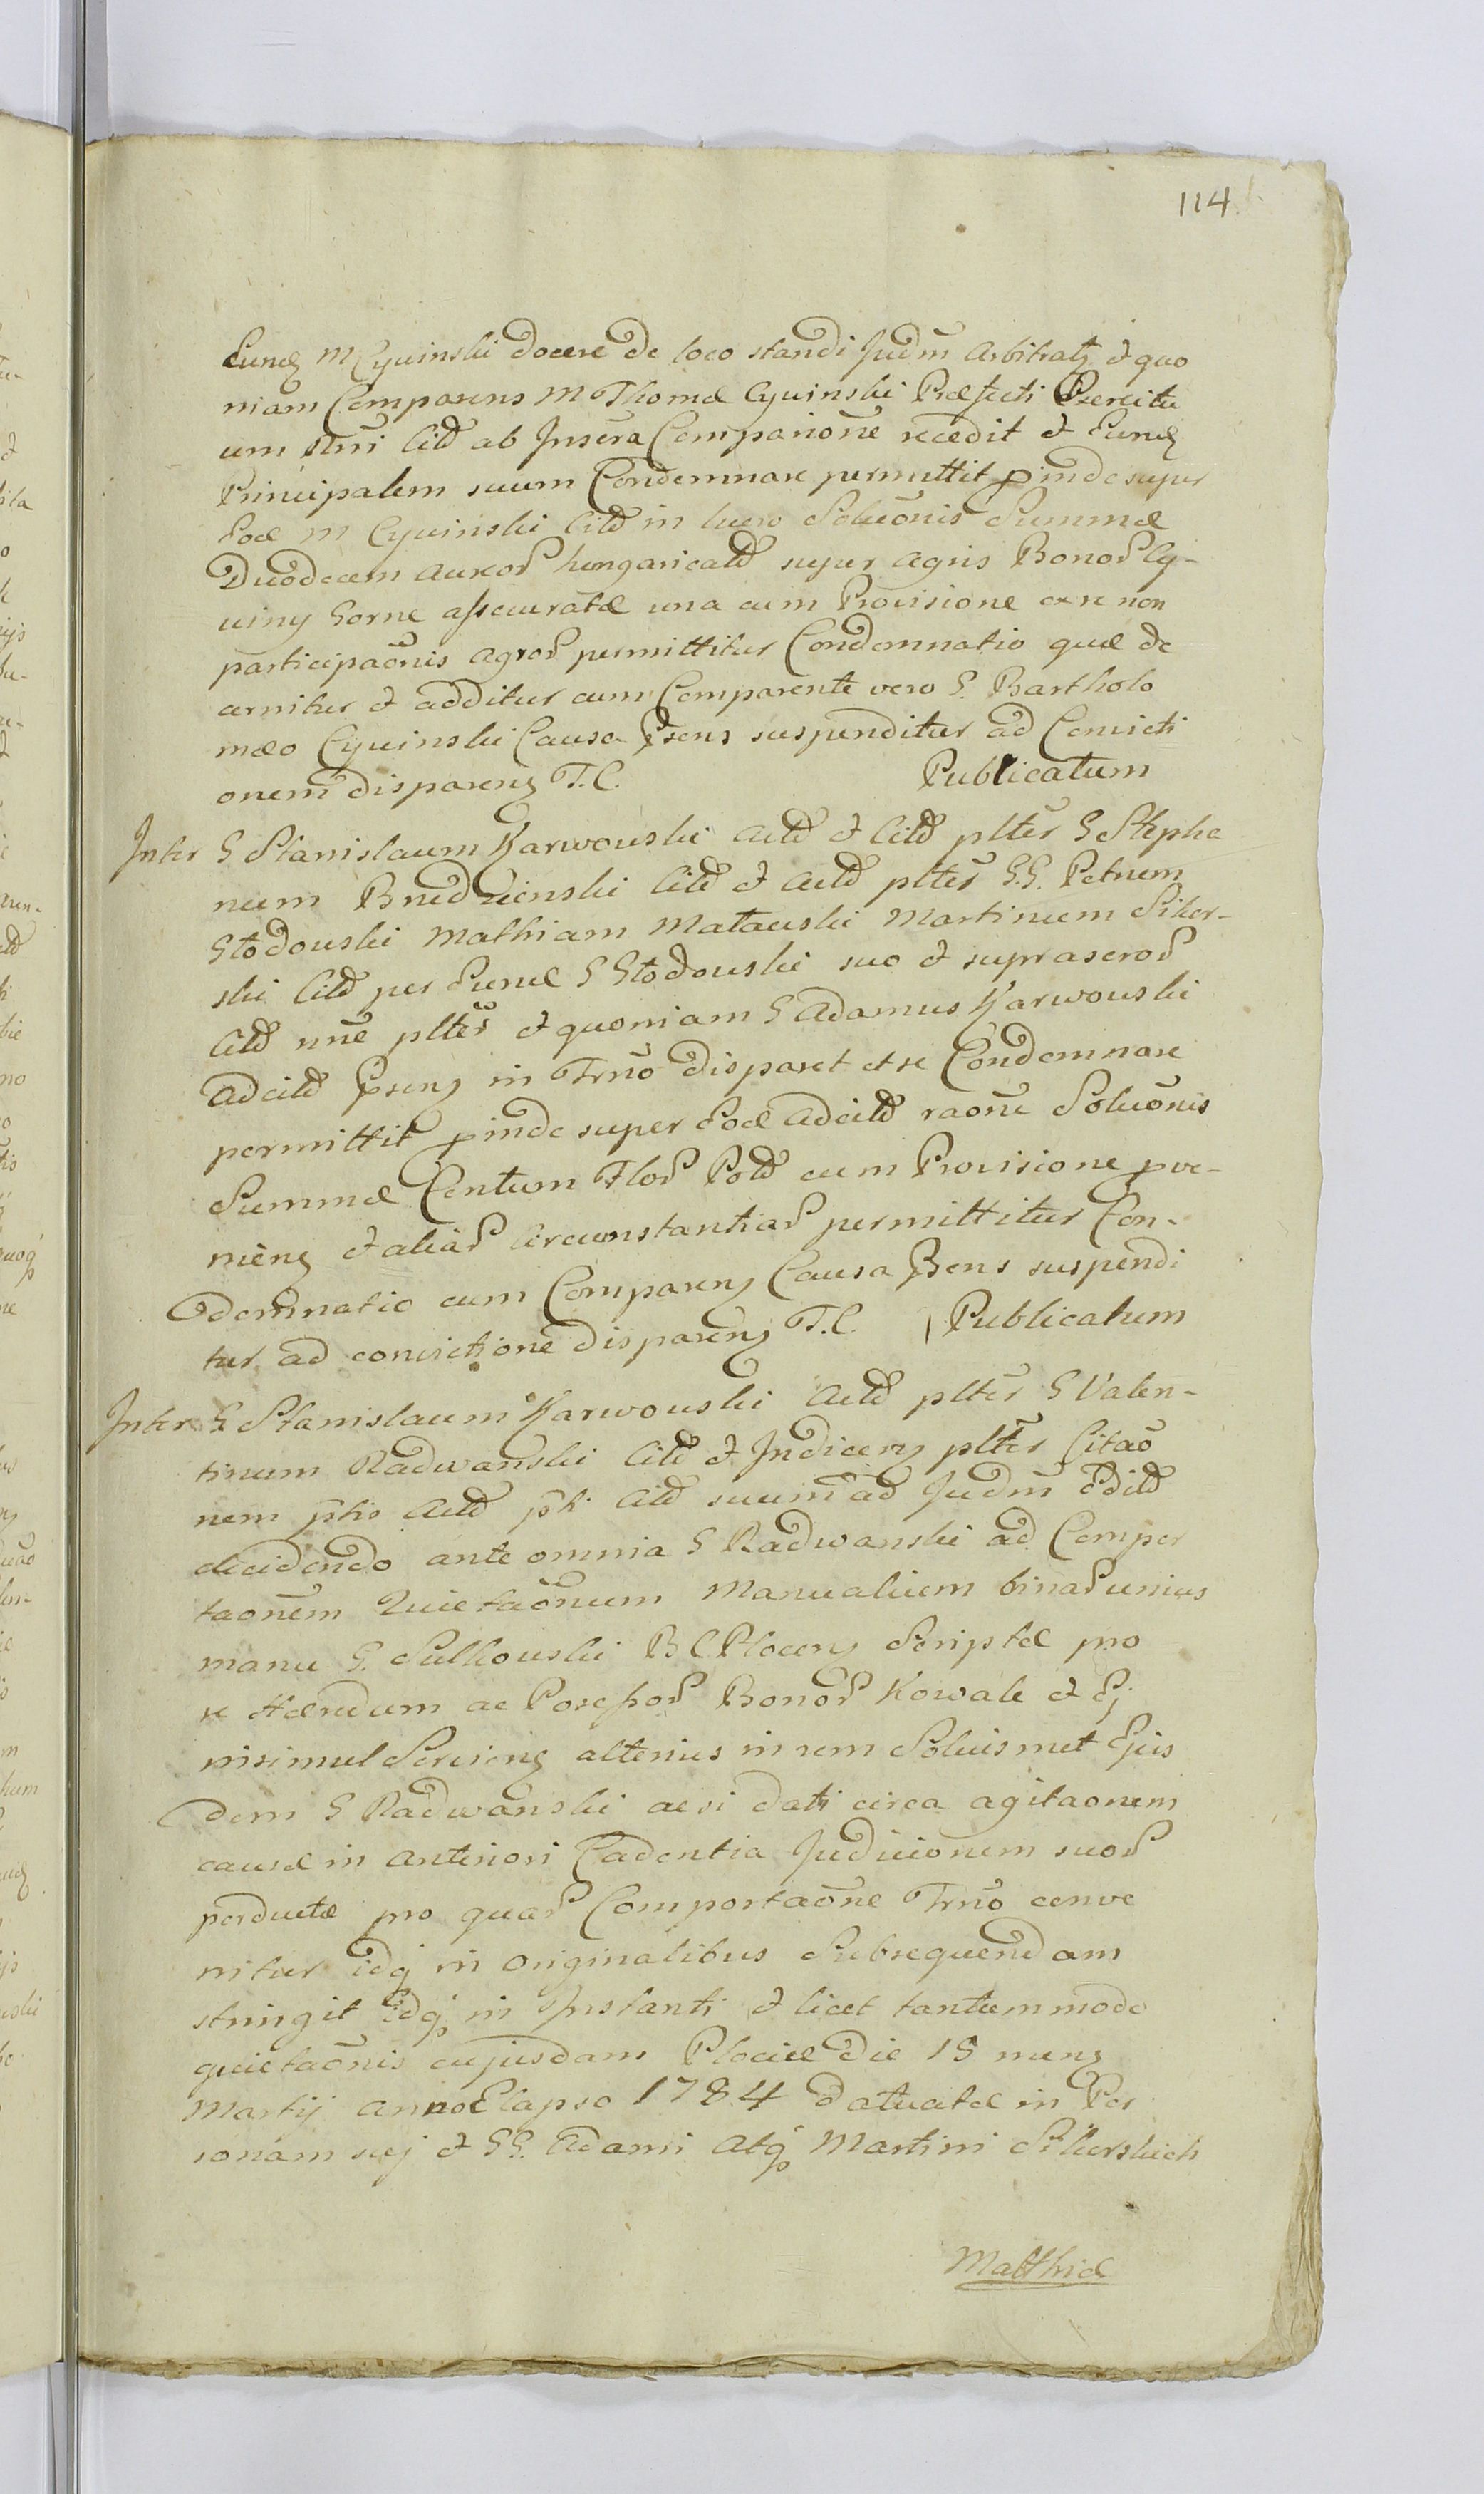 114
Eund M Cywinski docere de loco standi Judm Arbitratg et quo
niam Comparens M Thomæ Cywinski Præfecti Exercitu
um Citd ab Insera Comparione recedit et Eund
Principalem suum Condemnare permittit pinde super
Eod M Cywinski Citd in lucro Soluonis Summæ
Duodecem aureor hungaricald super agris Bonor Cy-
winy Gorne assecuratæ una cum Provisione ex re non
participaonis agror permittitur Condemnatio quæ de
cernitur et additur cum Comparente vero G. Bartholo
mæo Cywinski Causa Psens suspenditur ad Convicti
onem dispareng T.C. Publicatum
Inter G Stanislaum Karwowski Actd et Citd plter G Stepha
num Brudzienski Citd et Actd plter G.G. Petrum
Głodowski Mathiam Matawski Martinum Siker-
ski Citd per Eund G Głodowski suo et supraseror
Citd nne plter et quoniam G Adamus Karwowski
adcitd Pseng in Trno disparet et se Condemnare
permittit pinde super Eod adcitd raone Soluonis
Summæ Centum Flor Pold cum Provisione pve-
nieng et aliar Circumstantiar permittitur Con-
demnatio cum Compareng Causa Psens suspendi
tur ad convictione dispareng T.C. Publicatum
Inter G Stanislaum Karwowski Actd plter G Valen-
tinum Radwanski Citd et Indiceng plter Citao
nem ptis Actd Citd suum ad Judm Edild
decidendo ante omnia G Radwanski ad Compor
taonem Quietaonum Manualium binar unius
manu G. Sulkowski B C Ploceng Scriptæ pro
se Hærendum ac Possessor Bonor Kowale et
nisimul Servieng alterius in rem Soluismet Ejus
dem G Radwanski acsi dati circa agitaonem
causæ in anteriori Cadentia Judicionum suor
perductæ pro quar Comportaone Trno conve
nitur idq in Originalibus Subsequendam
stringit idq in Instanti et licet tantummodo
quietaonis cujusdam Plociæ Die 15 meng
Martij anno Elapso 1784 datuatæ in Per
sonam suj et GG. Adami Atq Martini Sikerskich
Matthiæ